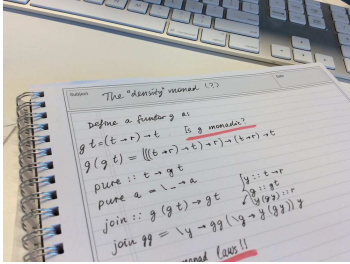 Subject
Date
The "density" monad (?)
Define a functor g as:
g t = (t → r) → t
Is g monadic?
g (g t) = (((t → r) → t) → r) → (t → r) → t
pure :: t → g t
pure a = \_ → a
join :: g (g t) → g t
y :: t → r
g :: g t
y (g y) :: r
join gg = \y → gg (\g → y (g y)) y
monad laws!!